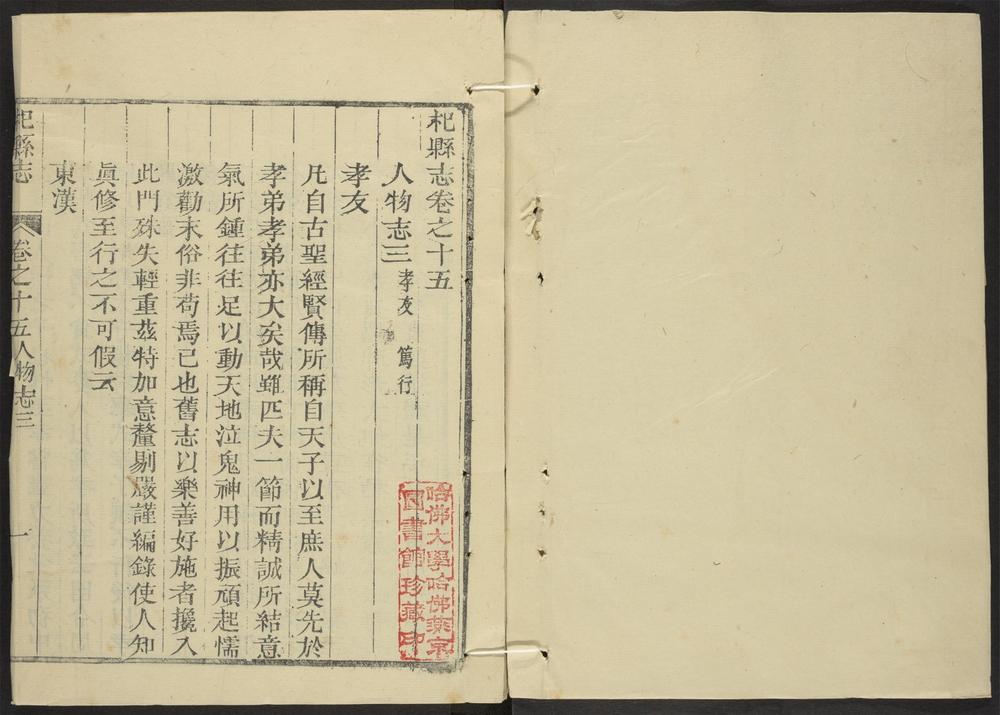 杞縣志卷之十五
人物志三 孝友 篤行
孝友
凡自古聖經賢傳所稱自天子以至庶人莫先於
孝弟孝弟亦大矣哉雖匹夫一節而精誠所結意
氣所鍾往往足以動天地泣鬼神用以振頑起懦
激勸末俗非苟焉已也舊志以樂善好施者攙入
此門殊失輕重茲特加意釐剔嚴謹編錄使人知
眞修至行之不可假云
東漢
杞縣志 卷之十五人物志三 一
哈佛大學哈佛燕京
圖書館珍藏印